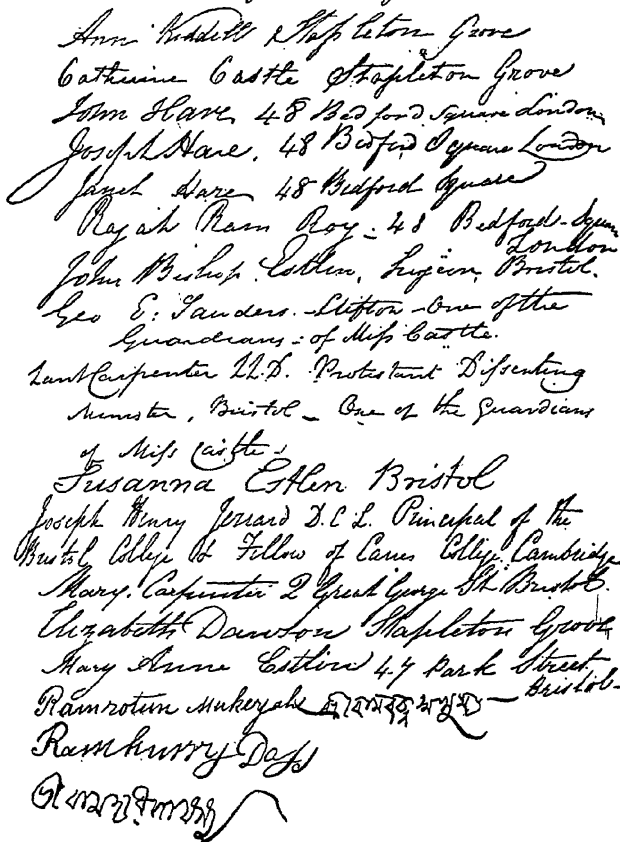 Ann Kiddell Stapleton Grove
Catherine Castle Stapleton Grove
John Hare 48 Bedford Square London
Joseph Hare, 48 Bedford Square London
Janet Hare 48 Bedford Square
Rajah Ram Roy - 48 Bedford-Square
London
John Bishop Estlin, Surgeon, Bristol.
Geo E: Sanders. Clifton - One of the
Guardians - of Miss Castle.
Lant Carpenter LL.D. Protestant Dissenting
Minister, Bristol - One of the Guardians
of Miss Castle -
Susanna Estlin Bristol
Joseph Henry Jerrard D.C.L. Principal of the
Bristol College & Fellow of Caius College, Cambridge
Mary. Carpenter 2 Great George St. Bristol.
Elizabeth Dawson Stapleton Grove
Mary Anne Estlin 47 Park Street
Bristol -
Ramrotun Mukerjah
Ramhurry Dass